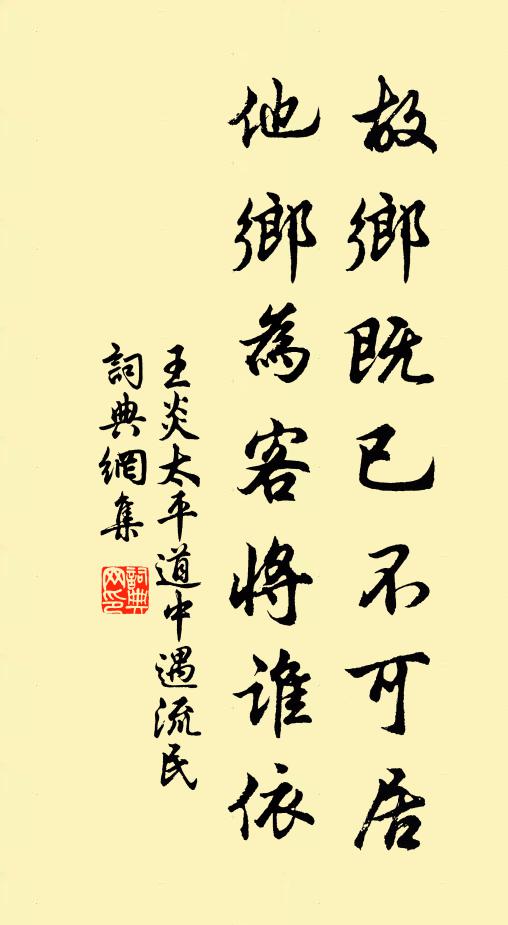 故鄉既已不可居
他鄉為客將誰依
王炎太平道中遇流民
詞典網集
詞典網印